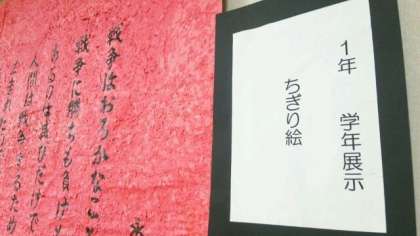 1年　学年展示
ちぎり絵
戦争はおろかなこと
戦争に勝ちも負けも
あるのは滅びだけで
人間は戦争するため
生まれた